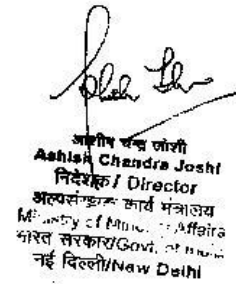 आशीष चन्द्र जोशी
Ashish Chandra Joshi
निदेशक/ Director
अल्पसंख्यक कार्य मंत्रालय
Ministry of Affairs
भारत सरकार/Govt. of
नई दिल्ली/New Delhi